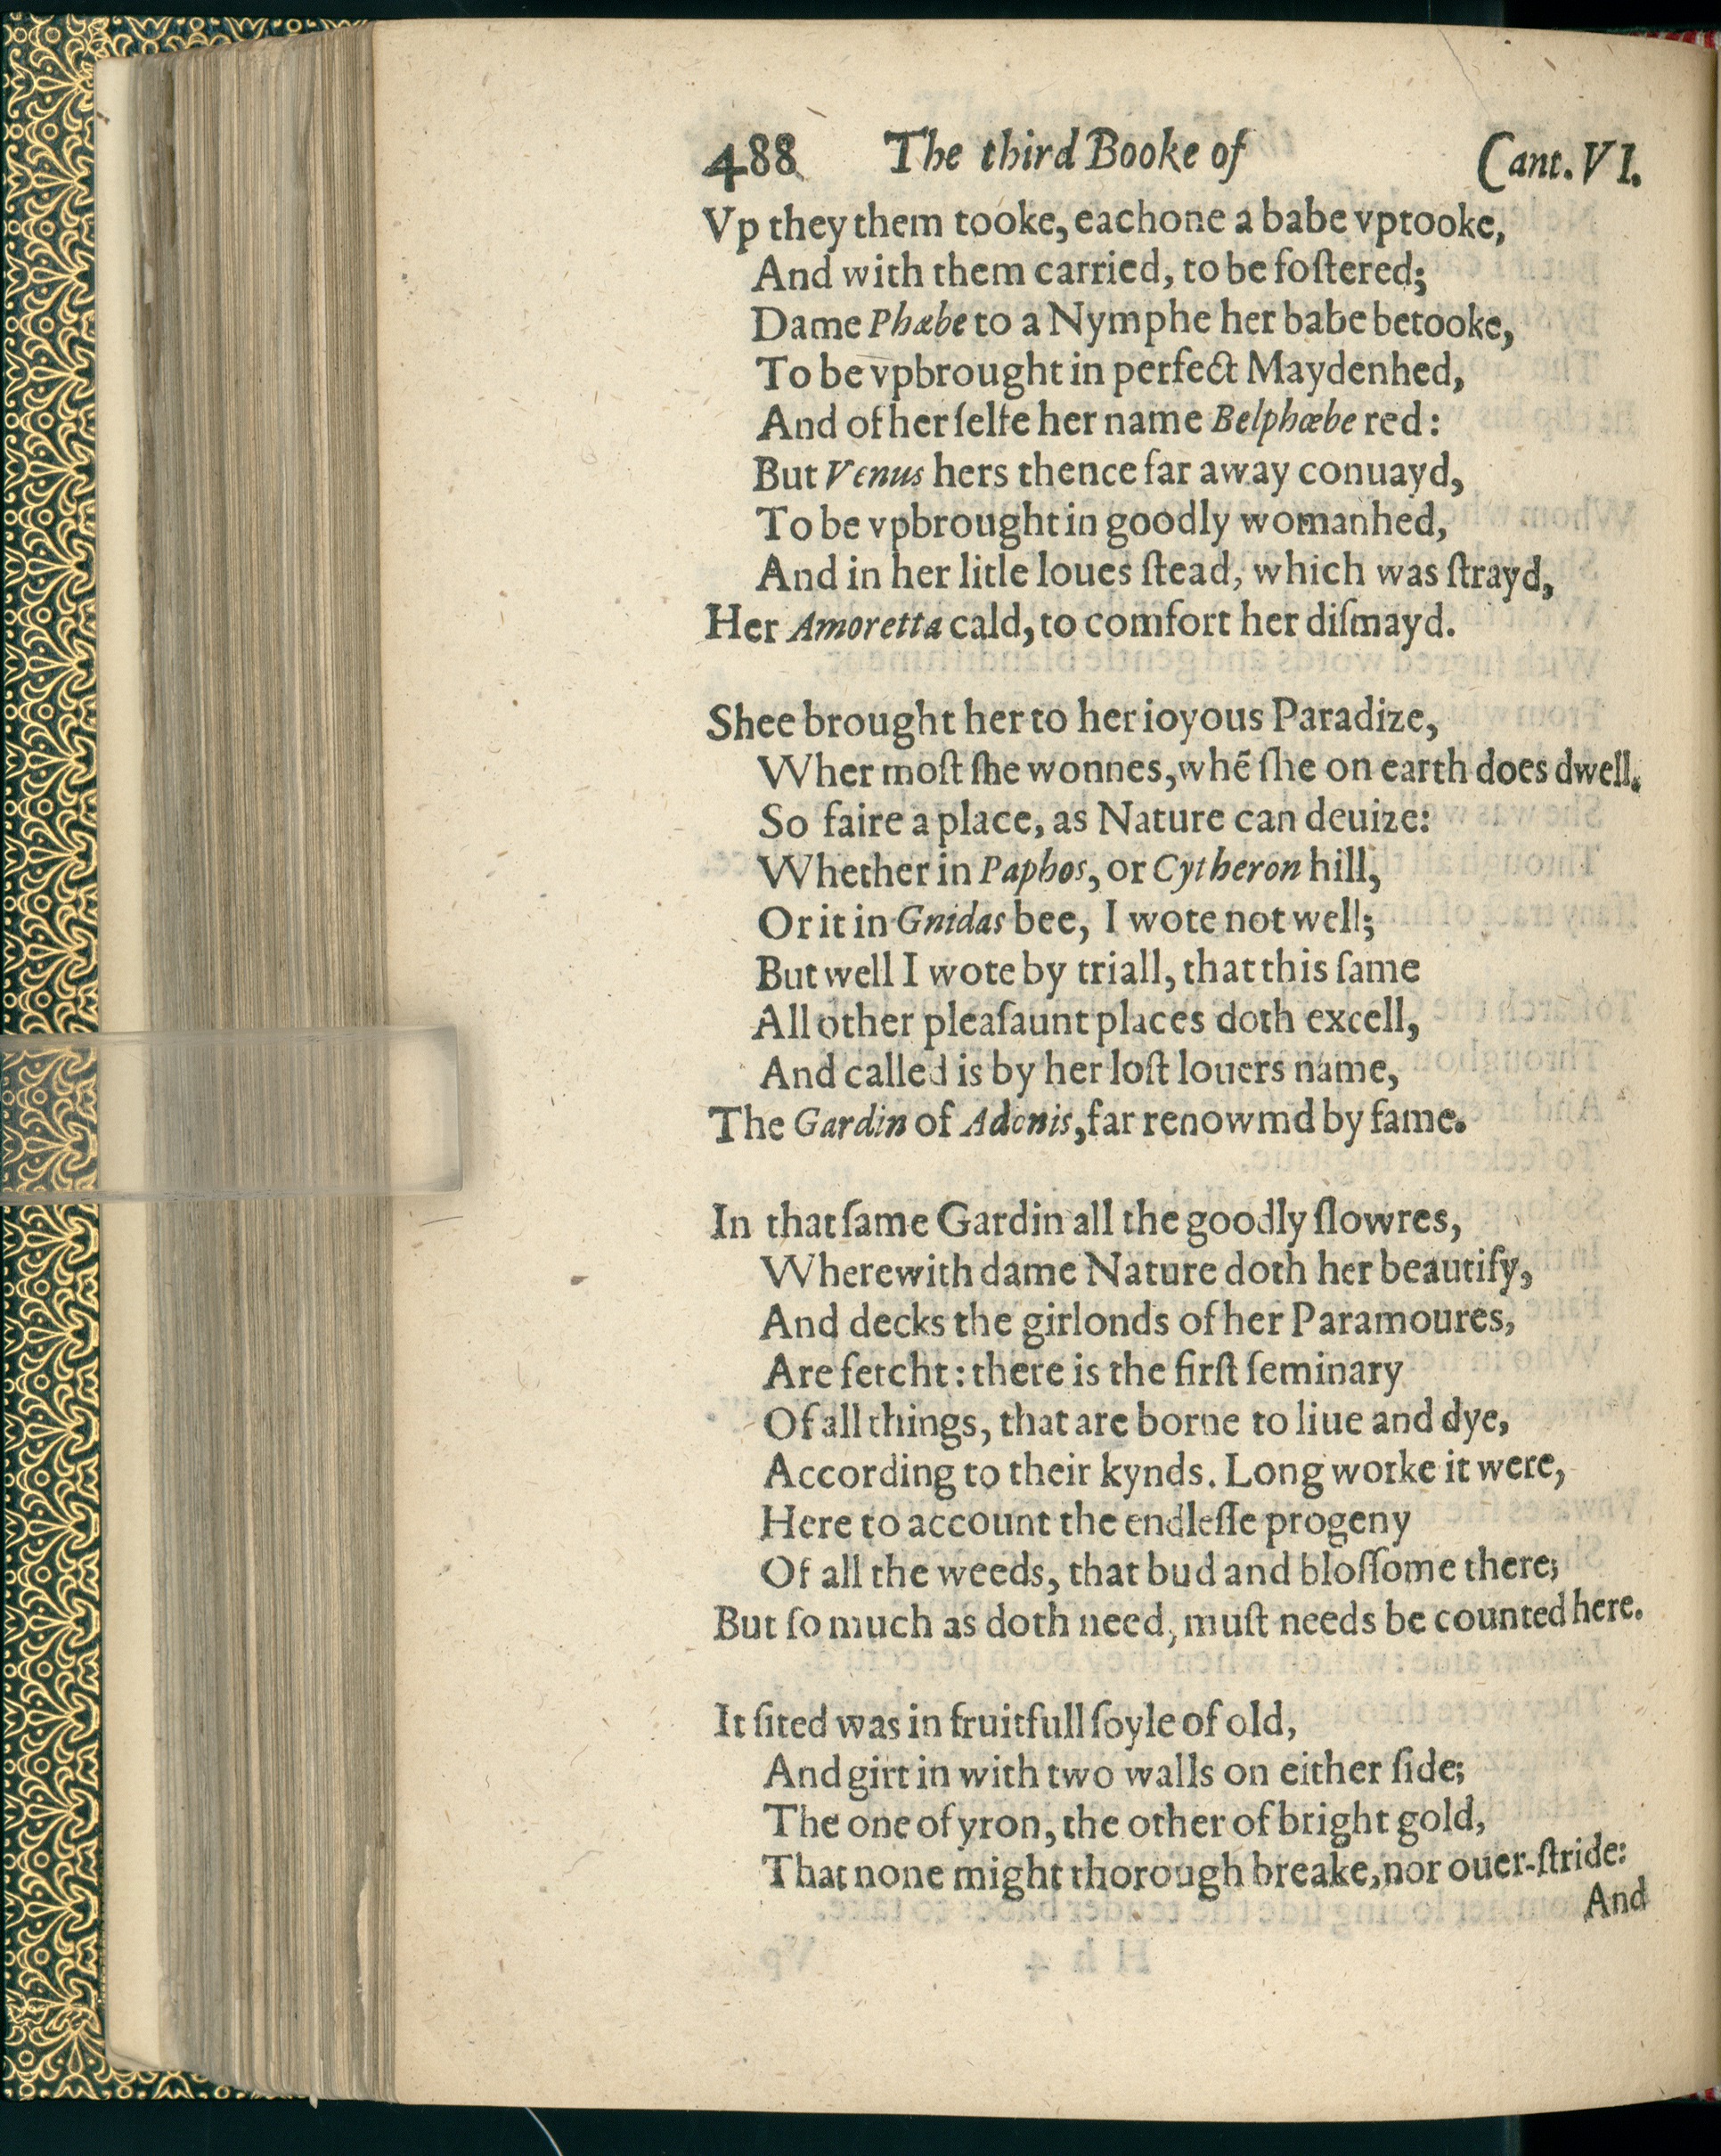 488 The third Booke of Cant. VI.
Vp they them tooke, eachone a babe vptooke,
And with them carried, to be foſtered;
Dame Phæbe to a Nymphe her babe betooke,
To be vpbrought in perfect Maydenhed,
And of her ſelfe her name Belphœbe red:
But Venus hers thence far away conuayd,
To be vpbrought in goodly womanhed,
And in her litle loues ſtead, which was ſtrayd,
Her Amoretta cald, to comfort her diſmayd.
Shee brought her to her ioyous Paradize,
Wher moſt ſhe wonnes, whē ſhe on earth does dwell.
So faire a place, as Nature can deuize:
Whether in Paphos, or Cytheron hill,
Or it in Gnidas bee, I wote not well;
But well I wote by triall, that this ſame
All other pleaſaunt places doth excell,
And called is by her loſt louers name,
The Gardin of Adonis, far renowmd by fame.
In that ſame Gardin all the goodly flowres,
Wherewith dame Nature doth her beautify,
And decks the girlonds of her Paramoures,
Are fetcht: there is the firſt ſeminary
Of all things, that are borne to liue and dye,
According to their kynds. Long worke it were,
Here to account the endleſſe progeny
Of all the weeds, that bud and bloſſome there;
But ſo much as doth need, muſt needs be counted here.
It ſited was in fruitfull ſoyle of old,
And girt in with two walls on either ſide;
The one of yron, the other of bright gold,
That none might thorough breake, nor ouer-ſtride:
And